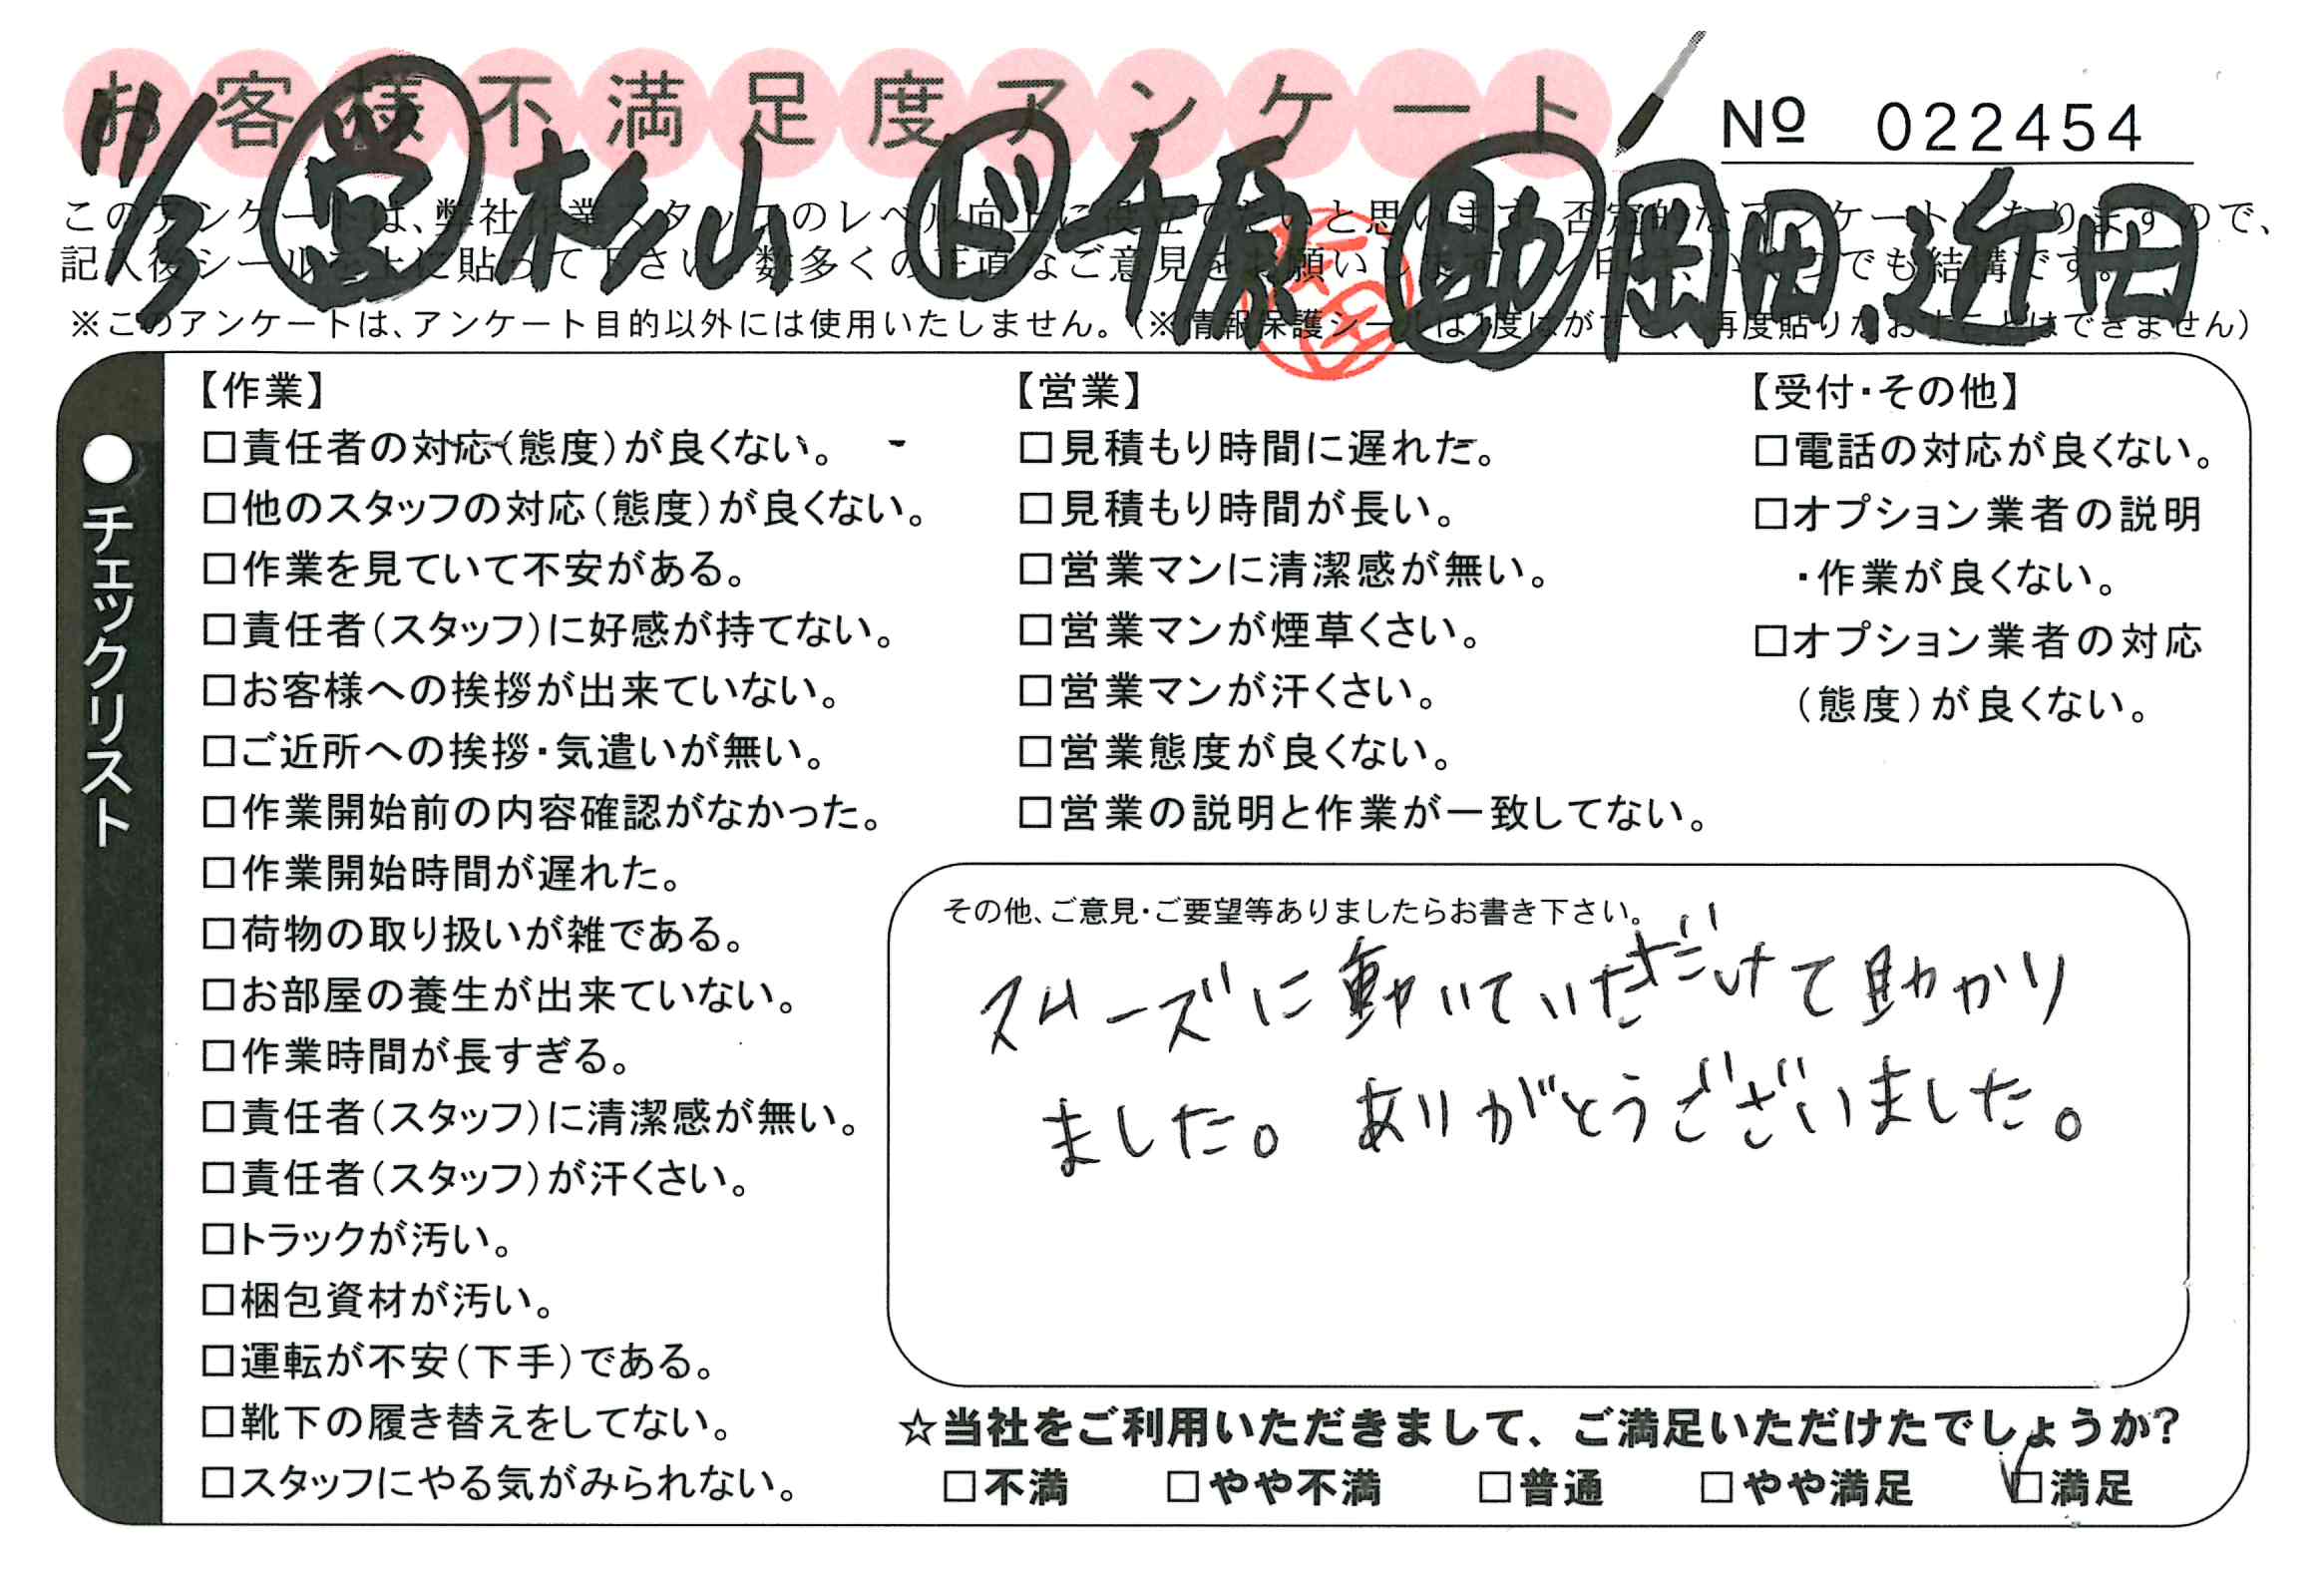 お客様不満足度アンケート
№ 022454
11/3 営 杉山 ド 千原 助 岡田、近田
このアンケートは、弊社作業スタッフのレベル向上に役立てたいと思います。否定的なアンケートになりますので、
記入後シールを上に貼って下さい。数多くの正直なご意見をお願いします。
※このアンケートは、アンケート目的以外には使用いたしません。（※情報保護シールは1度はがすと、再度貼りなおすことはできません）
●チェックリスト
【作業】
□責任者の対応（態度）が良くない。
□他のスタッフの対応（態度）が良くない。
□作業を見ていて不安がある。
□責任者（スタッフ）に好感が持てない。
□お客様への挨拶が出来ていない。
□ご近所への挨拶・気遣いが無い。
□作業開始前の内容確認がなかった。
□作業開始時間が遅れた。
□荷物の取り扱いが雑である。
□お部屋の養生が出来ていない。
□作業時間が長すぎる。
□責任者（スタッフ）に清潔感が無い。
□責任者（スタッフ）が汗くさい。
□トラックが汚い。
□梱包資材が汚い。
□運転が不安（下手）である。
□靴下の履き替えをしてない。
□スタッフにやる気がみられない。
【営業】
□見積もり時間に遅れた。
□見積もり時間が長い。
□営業マンに清潔感が無い。
□営業マンが煙草くさい。
□営業マンが汗くさい。
□営業態度が良くない。
□営業の説明と作業が一致してない。
【受付・その他】
□電話の対応が良くない。
□オプション業者の説明
・作業が良くない。
□オプション業者の対応
（態度）が良くない。
その他、ご意見・ご要望等ありましたらお書き下さい。
スムーズに動いていただけて助かり
ました。ありがとうございました。
☆当社をご利用いただきまして、ご満足いただけたでしょうか？
□不満 □やや不満 □普通 □やや満足 ☑満足